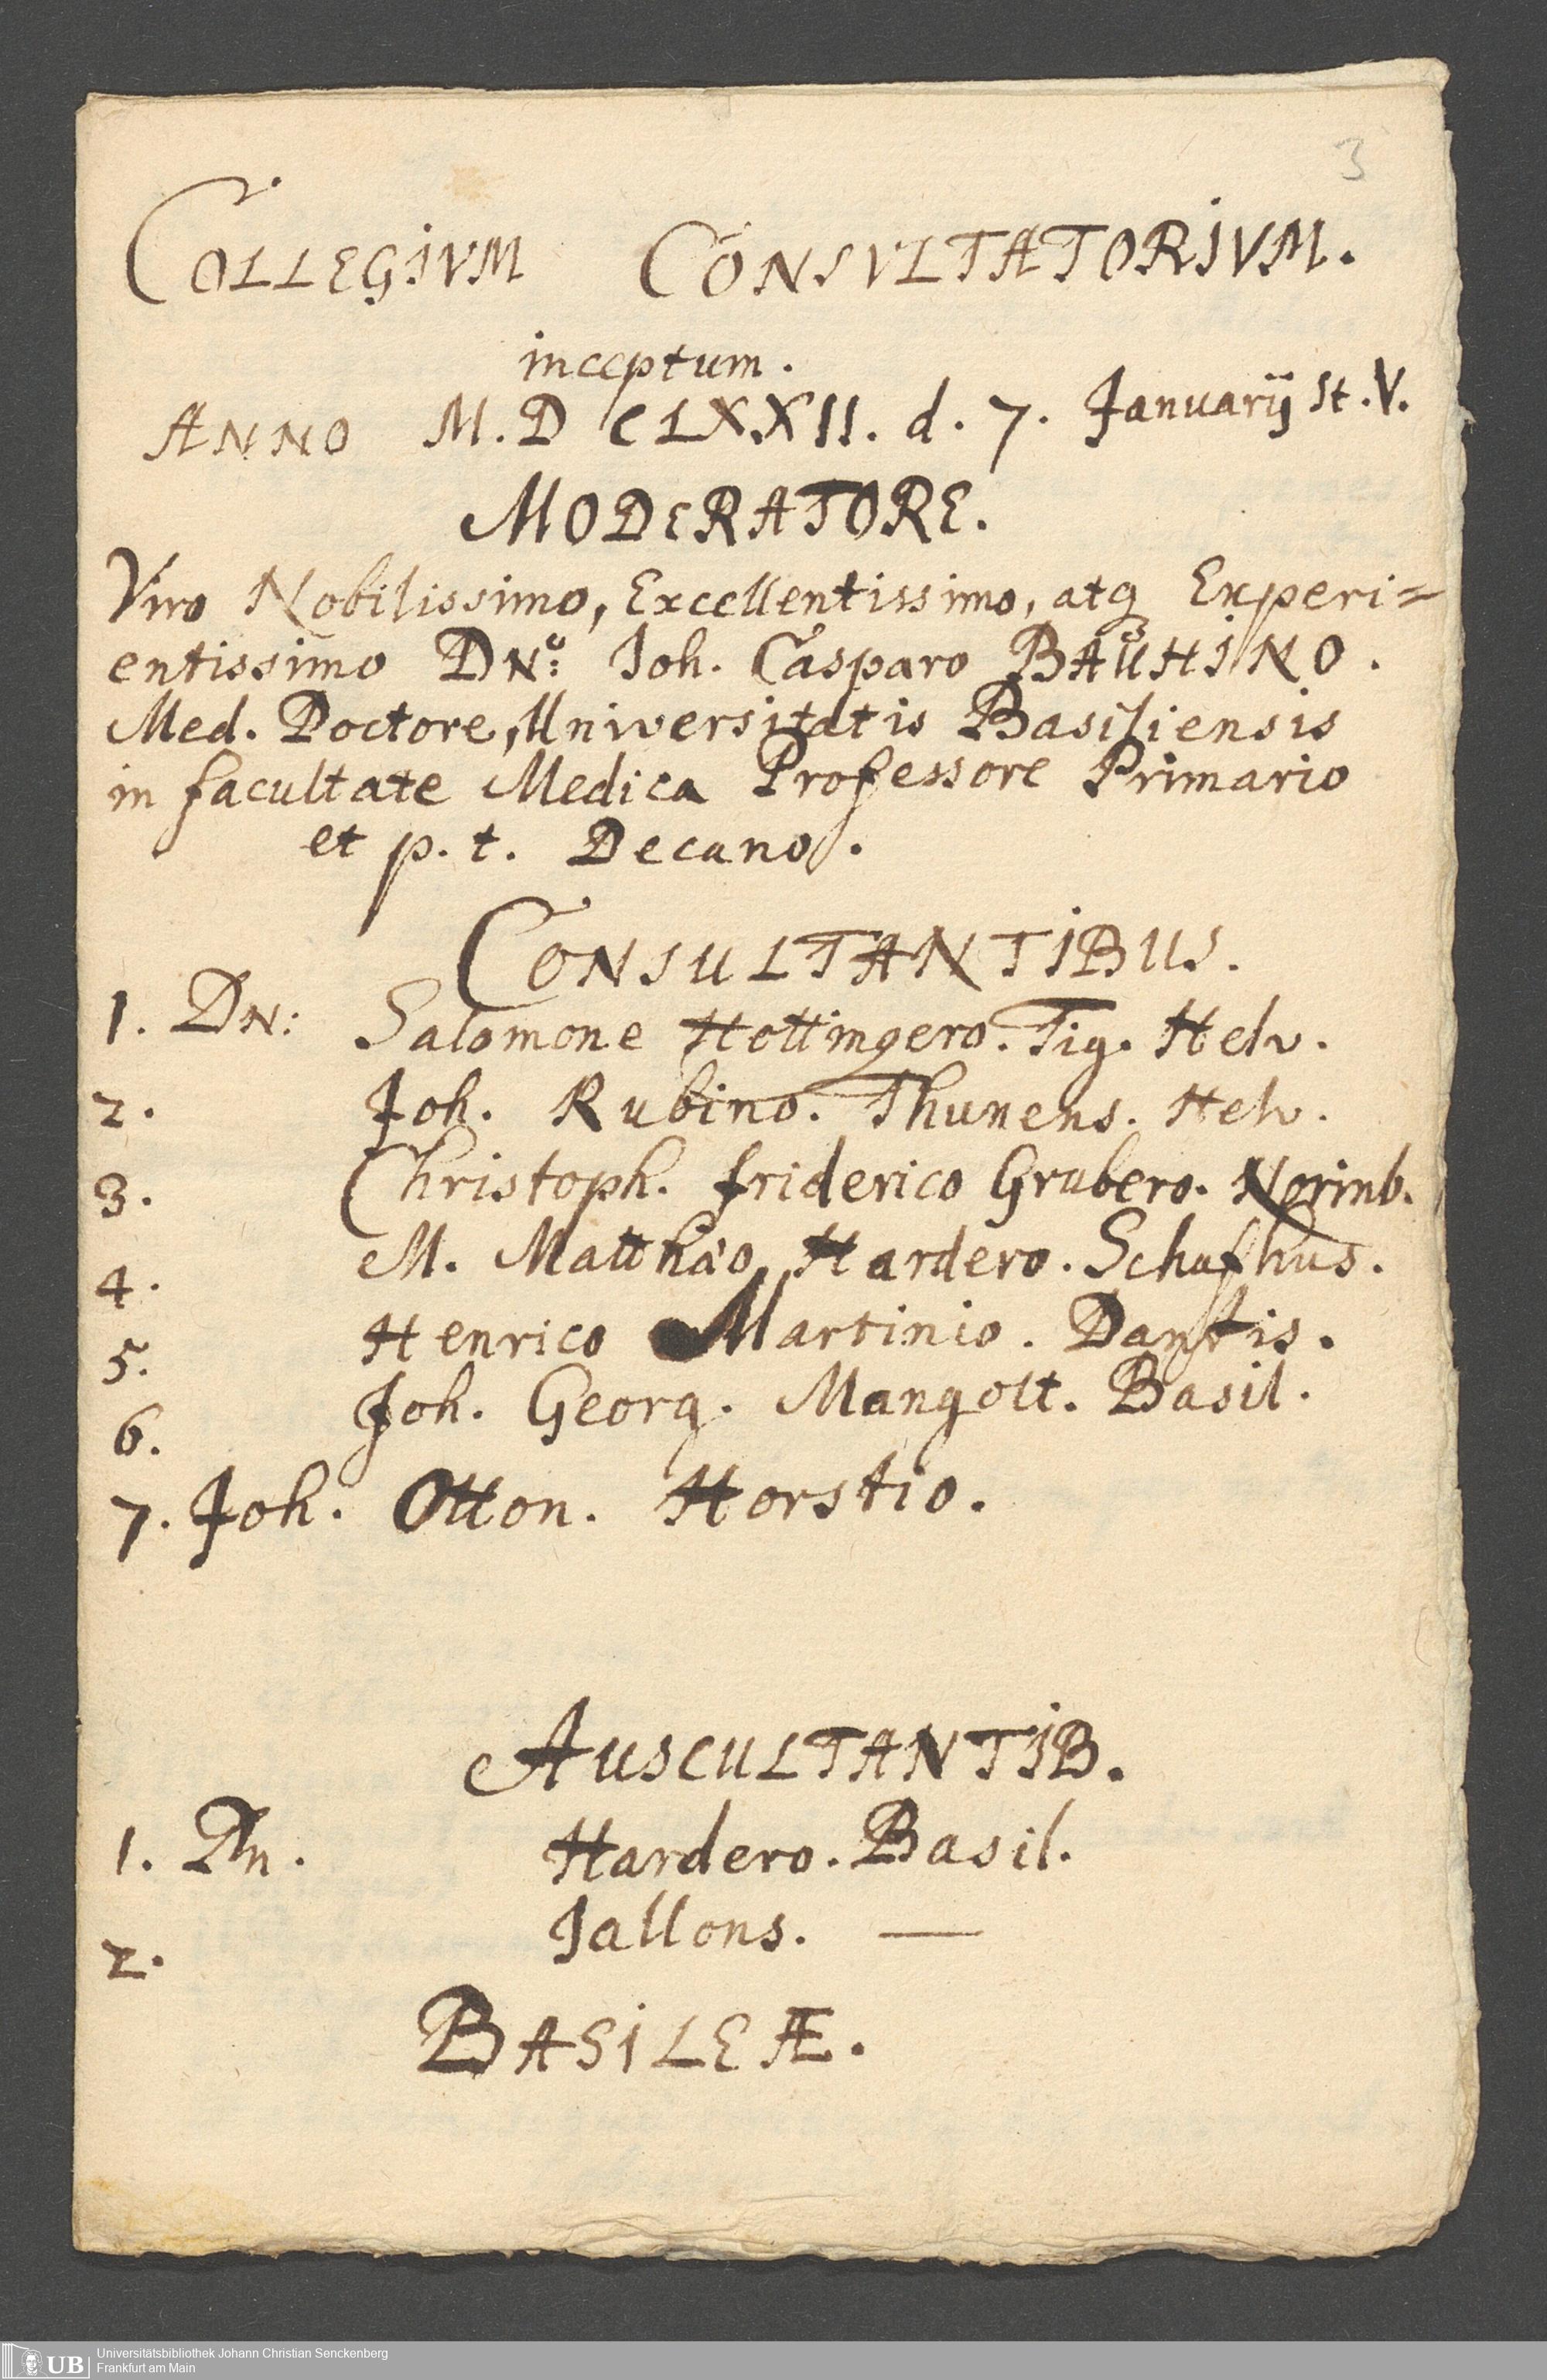 3
COLLEGIVM CONSVLTATORIVM.
inceptum.
ANNO M.D CLXXII. d. 7. Januarij St. V.
MODERATORE.
Viro Nobilissimo, Excellentissimo, atq Experi=
entissimo DN:o Joh. Casparo BAUHINO.
Med. Doctore, Universitatis Basiliensis
in facultate Medica Professore Primario
et p. t. Decano.
CONSULTANTIBUS.
1. DN: Salomone Hottingero. Tig. Helv.
2. Joh. Rubino. Thunens. Helv.
3. Christoph. Friderico Grubero. Norimb.
4. M. Matthäo Hardero. Schafhus.
5. Henrico Martinio. Dantis.
6. Joh. Georg. Mangolt. Basil.
7. Joh. Otton. Horstio.
AUSCULTANTIB.
1. Dn. Hardero. Basil.
2. Jallons. —
BASILEÆ.
UB Universitätsbibliothek Johann Christian Senckenberg
Frankfurt am Main